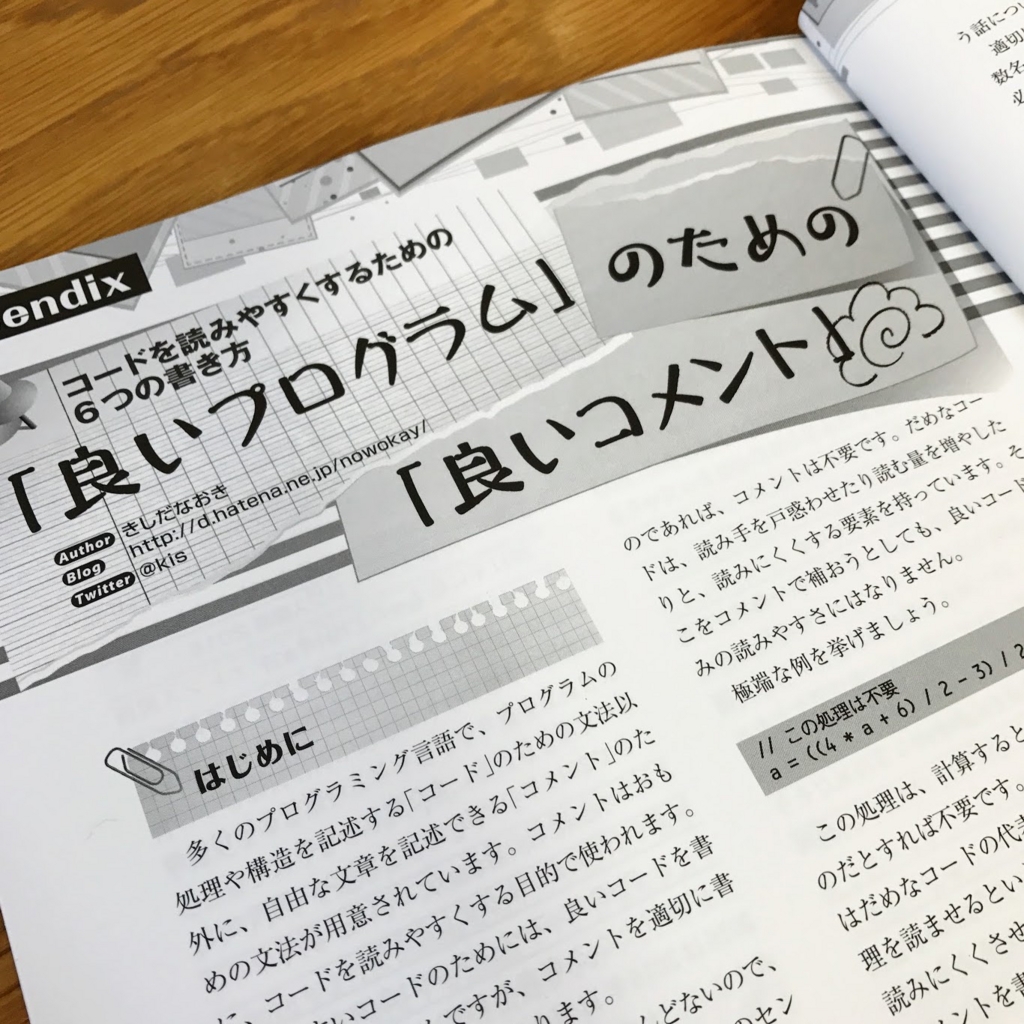 endix
コードを読みやすくするための
6つの書き方
「良いプログラム」のための
「良いコメント」
Author きしだなおき
Blog http://d.hatena.ne.jp/nowokay/
Twitter @kis
はじめに
多くのプログラミング言語で、プログラムの
処理や構造を記述する「コード」のための文法以
外に、自由な文章を記述できる「コメント」のた
めの文法が用意されています。コメントはおも
に、コードを読みやすくする目的で使われます。
いコードのためには、良いコードを書
ですが、コメントを適切に書
ります。
どないので、
のセン
のであれば、コメントは不要です。だめなコー
ドは、読み手を戸惑わせたり読む量を増やした
りと、読みにくくする要素を持っています。そ
こをコメントで補おうとしても、良いコード
みの読みやすさにはなりません。
極端な例を挙げましょう。
// この処理は不要
a = ((4 * a + 6) / 2 - 3) / 2
この処理は、計算すると
のだとすれば不要です。
はだめなコードの代表
理を読ませるとい
読みにくくさせ
メントを書
う話につい
適切
数名
必